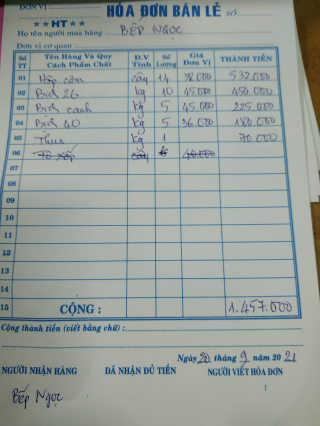 ĐƠN VỊ :
HÓA ĐƠN BÁN LẺ SỐ
★★ HT ★★
Họ tên người mua hàng : BẾP NGỌC
Đơn vị cơ quan :
Số TT Tên Hàng Và Quy Cách Phẩm Chất Đ.V Tính Số Lượng Giá Đơn Vị THÀNH TIỀN
01 Hộp cơm cây 14 38000 532.000
02 Bịch 26 kg 10 45000 450.000
03 Bịch canh kg 5 45.000 225.000
04 Bịch 40 kg 5 36.000 180.000
05 Thun kg 1 70.000
06
07
08
09
10
11
12
13
14
15 CỘNG : 1.457.000
Cộng thành tiền (viết bằng chữ) :
Ngày 20 tháng 9 năm 2021
NGƯỜI NHẬN HÀNG ĐÃ NHẬN ĐỦ TIỀN NGƯỜI VIẾT HÓA ĐƠN
Bếp Ngọc